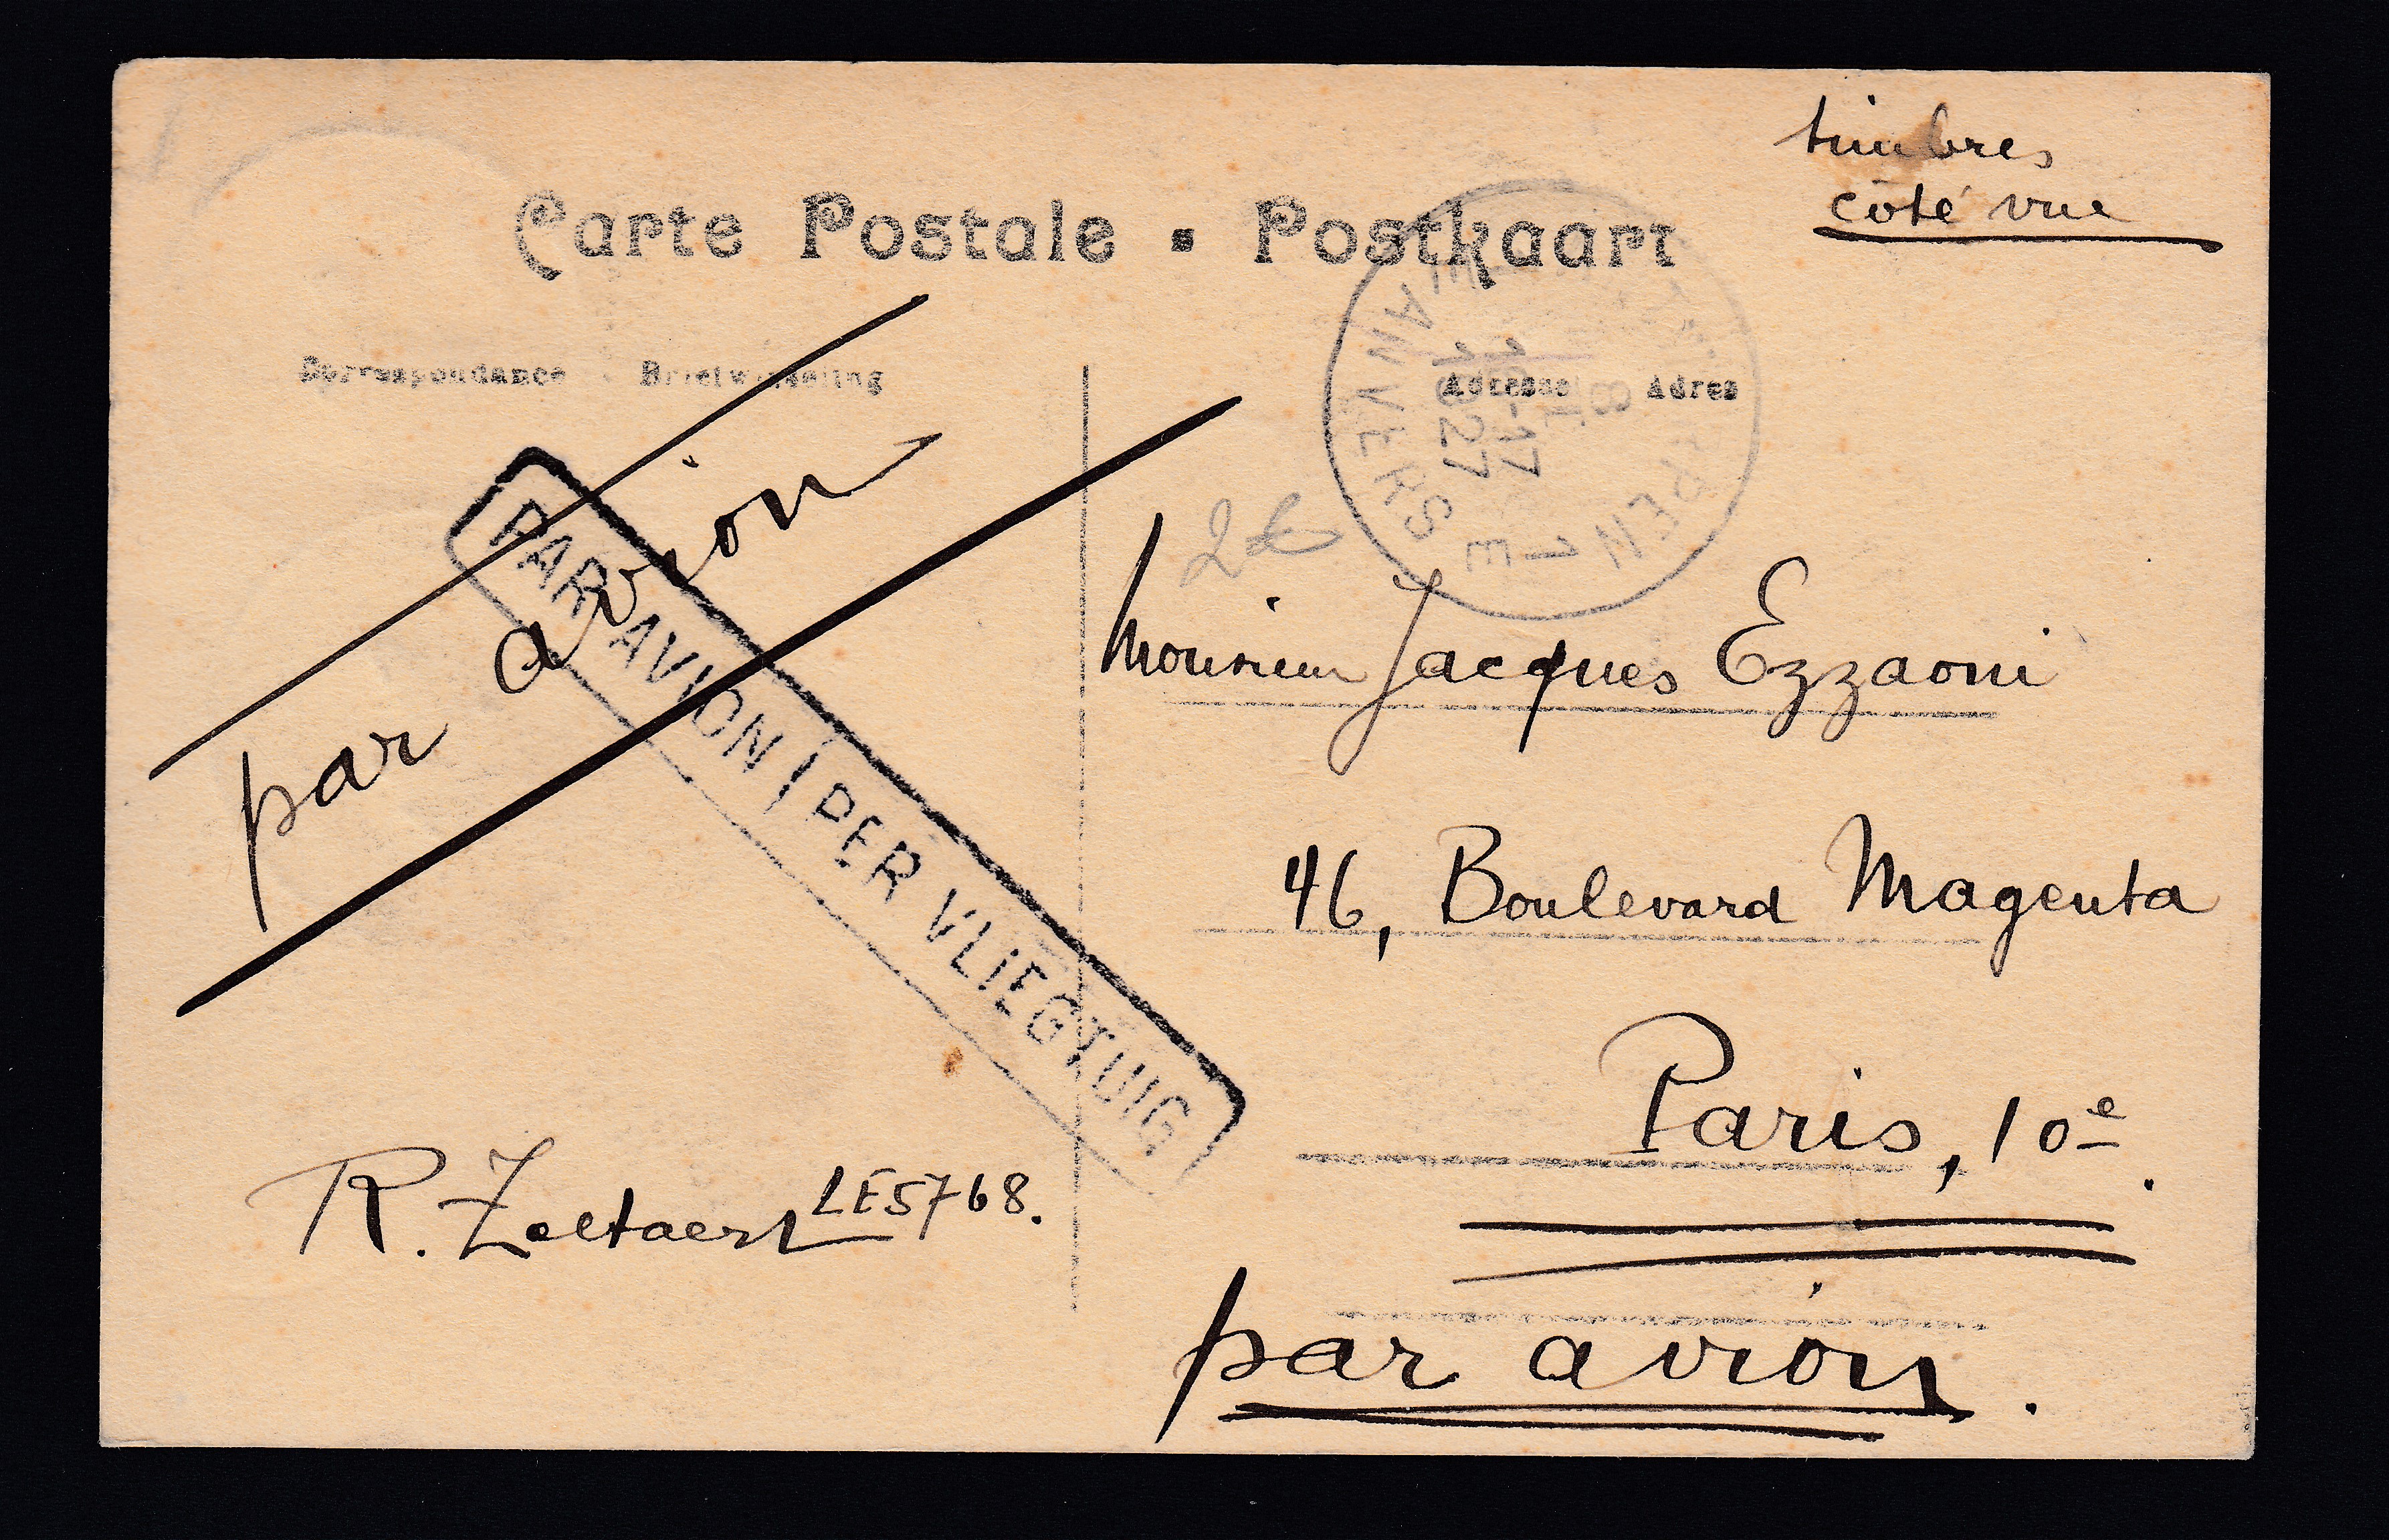 timbres
côté vue
Carte Postale ▪ Postkaart
Correspondance Briefwisseling
Adresse Adres
ANVERS 1 E
16-17
1927
par avion
PAR AVION | PER VLIEGTUIG
Monsieur Jacques Ezzaoui
46, Boulevard Magenta
Paris, 10e.
R. LE5768.
par avion.